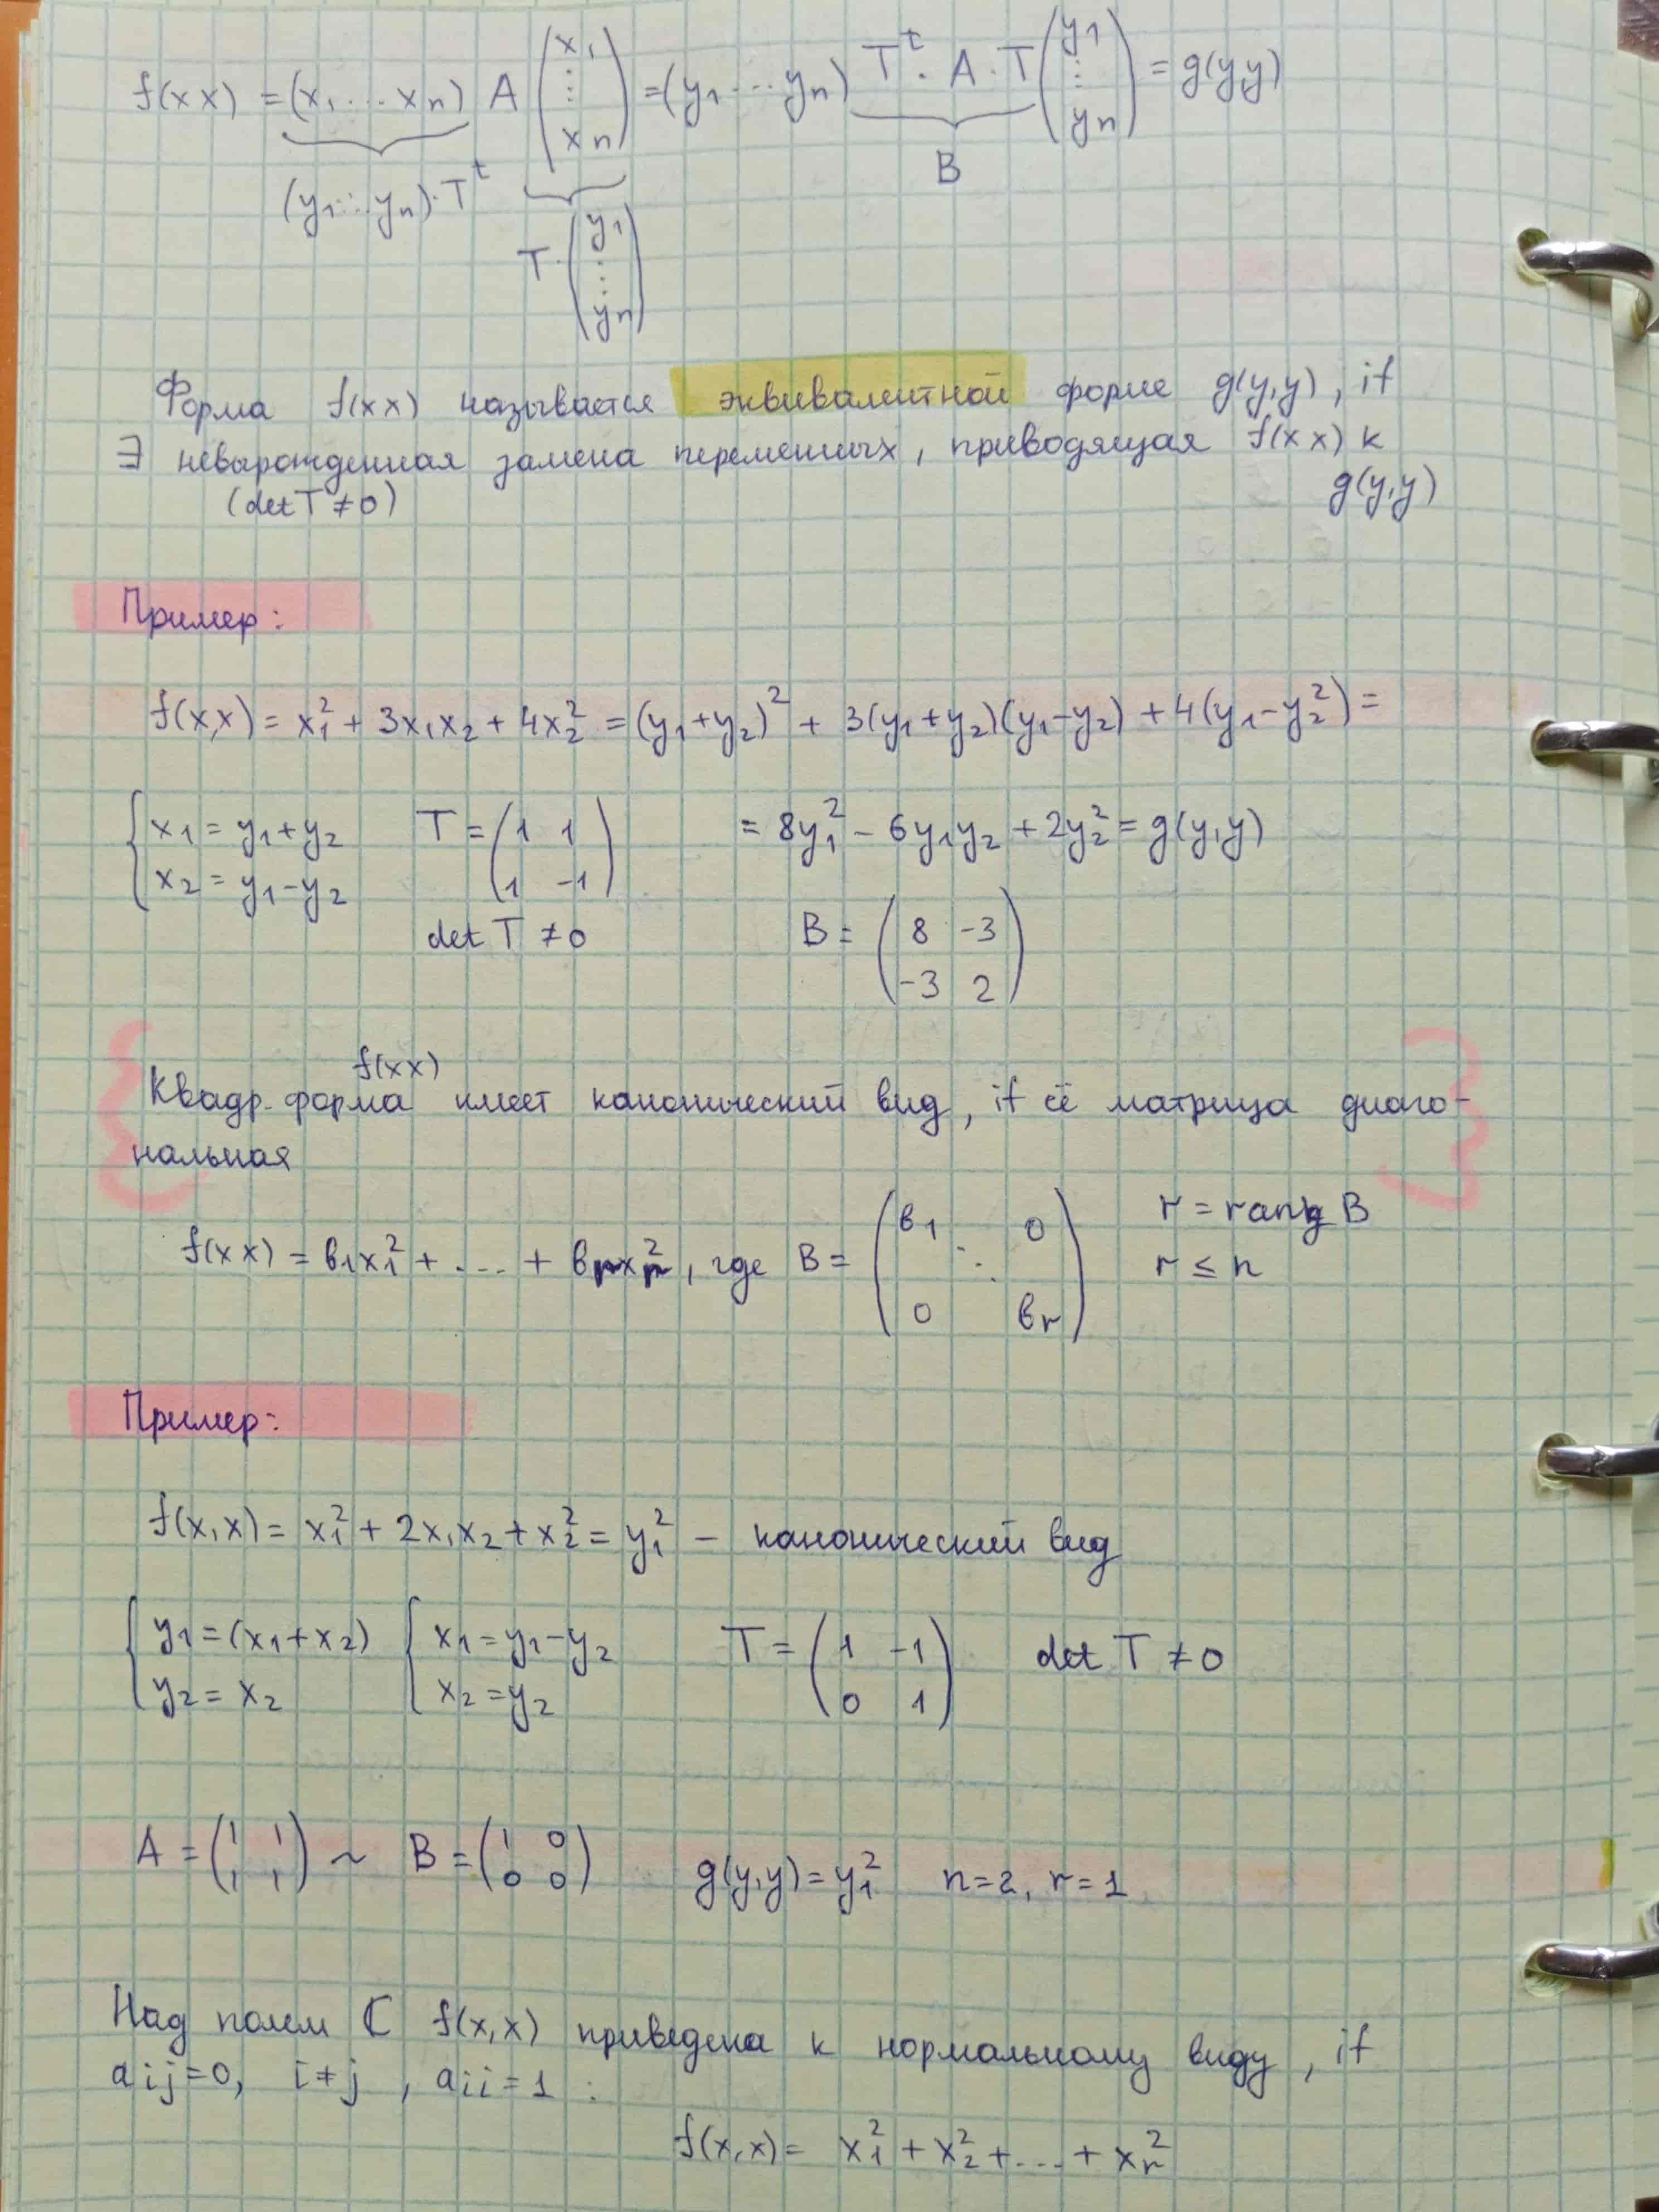 f(x x) = (x₁ ... xₙ) A (x₁ ⋮ xₙ) = (y₁ ... yₙ) Tᵗ · A · T (y₁ ⋮ yₙ) = g(y y)
B
(y₁ ... yₙ) · Tᵗ
T · (y₁ ⋮ yₙ)
Форма f(x x) называется эквивалентной форме g(y,y), if
∃ невырожденная замена переменных, приводящая f(x x) к
(det T ≠ 0) g(y,y)
Пример:
f(x,x) = x₁² + 3x₁x₂ + 4x₂² = (y₁+y₂)² + 3(y₁+y₂)(y₁-y₂) + 4(y₁-y₂²) =
{ x₁ = y₁+y₂ T = (1 1
x₂ = y₁-y₂ 1 -1) = 8y₁² - 6y₁y₂ + 2y₂² = g(y,y)
det T ≠ 0 B = (8 -3
-3 2)
f(x x)
Квадр. форма имеет канонический вид, if её матрица диаго-
нальная
f(x x) = b₁x₁² + ... + bᵣxᵣ², где B = (b₁ 0 ⋱ 0 bᵣ) r = rang B
r ≤ n
Пример:
f(x,x) = x₁² + 2x₁x₂ + x₂² = y₁² – канонический вид
{ y₁ = (x₁+x₂) { x₁ = y₁-y₂ T = (1 -1 det T ≠ 0
y₂ = x₂ x₂ = y₂ 0 1)
A = (1 1 1 1) ~ B = (1 0 0 0) g(y,y) = y₁² n=2, r=1
Над полем ℂ f(x,x) приведена к нормальному виду, if
aij=0, i≠j, aii=1 :
f(x,x) = x₁² + x₂² + ... + xᵣ²